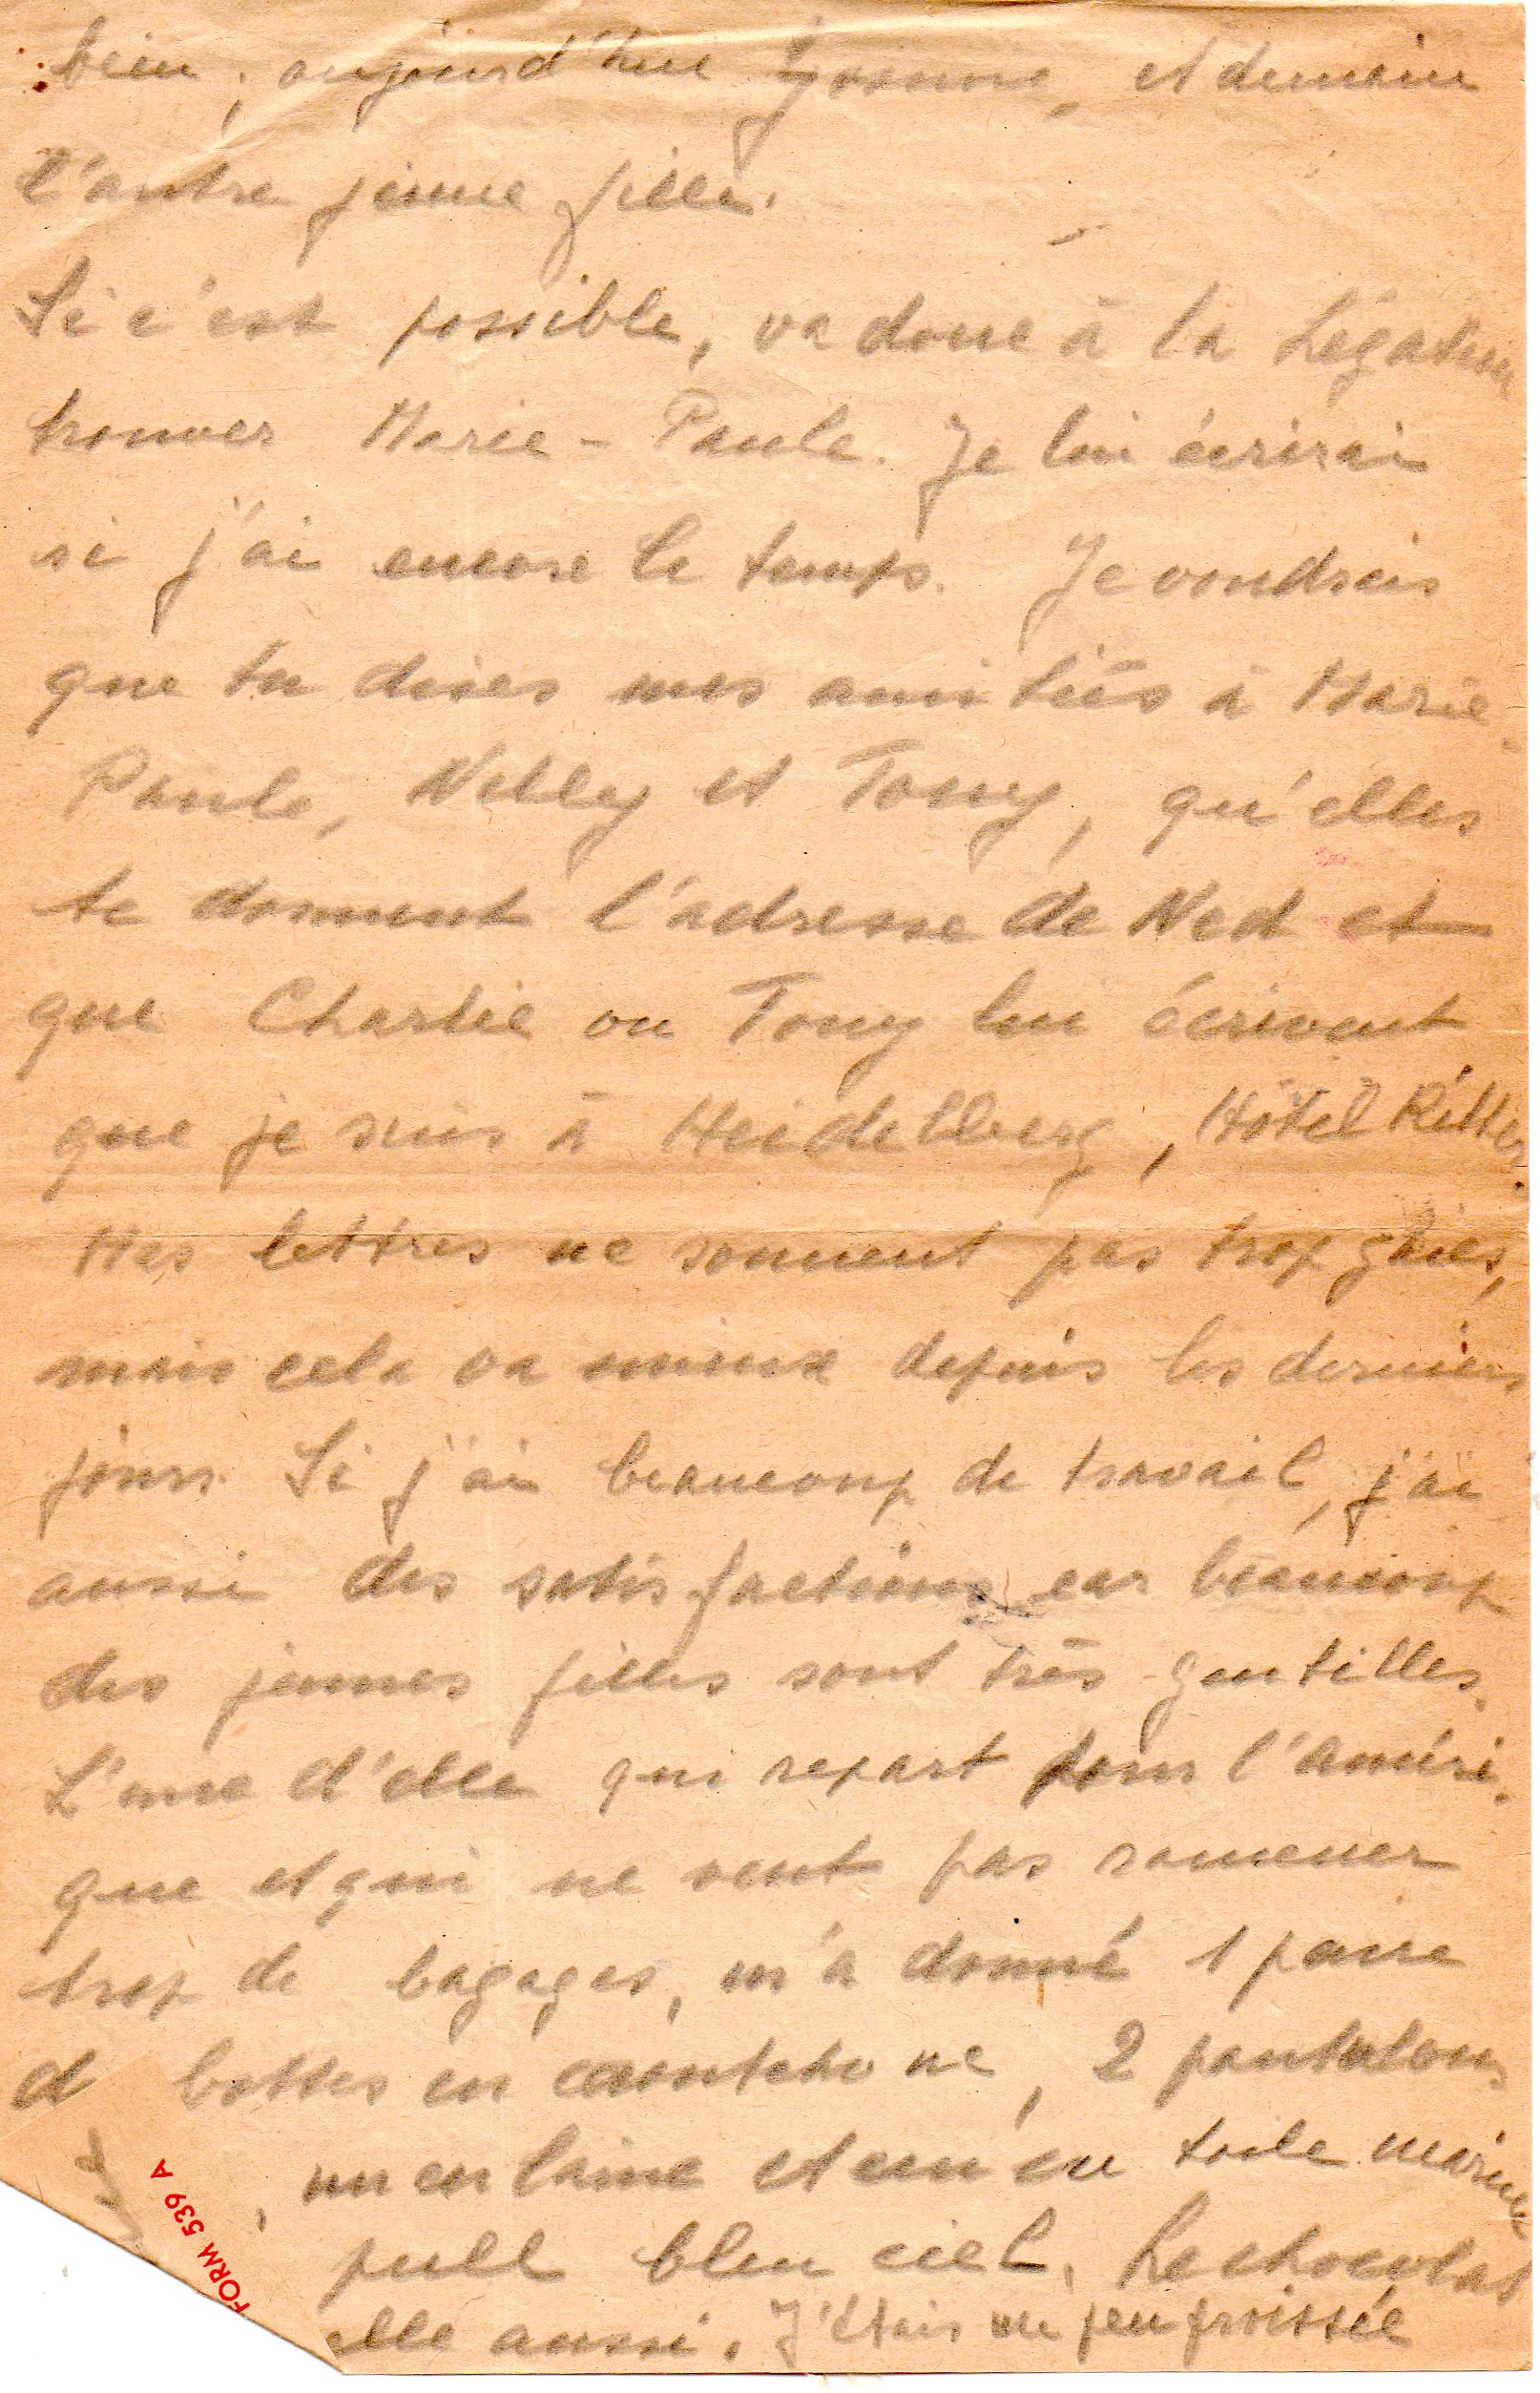 bien, aujourd'hui Yvonne, et demain
l'autre jeune fille.
Si c'est possible, va donc à la Légation
trouver Marie-Paule. Je lui écrirai
si j'ai encore le temps. Je voudrais
que tu dises mes amitiés à Marie-
Paule, Nelly et Tony, qu'elles
te donnent l'adresse de Ned et
que Charlie ou Tony lui écrivent
que je suis à Heidelberg, Hôtel Ritter.
Mes lettres ne sonnent pas trop gaies,
mais cela va mieux depuis les derniers
jours. Si j'ai beaucoup de travail, j'ai
aussi des satisfactions car beaucoup
des jeunes filles sont très gentilles.
L'une d'elle qui repart pour l'Améri-
que et qui ne veut pas ramener
trop de bagages, m'a donné 1 paire
d bottes en caoutchouc, 2 pantalons
, un en laine et un en toile marine
pull bleu ciel. Le chocolat
elle aussi. J'étais un peu froissée
FORM 539 A